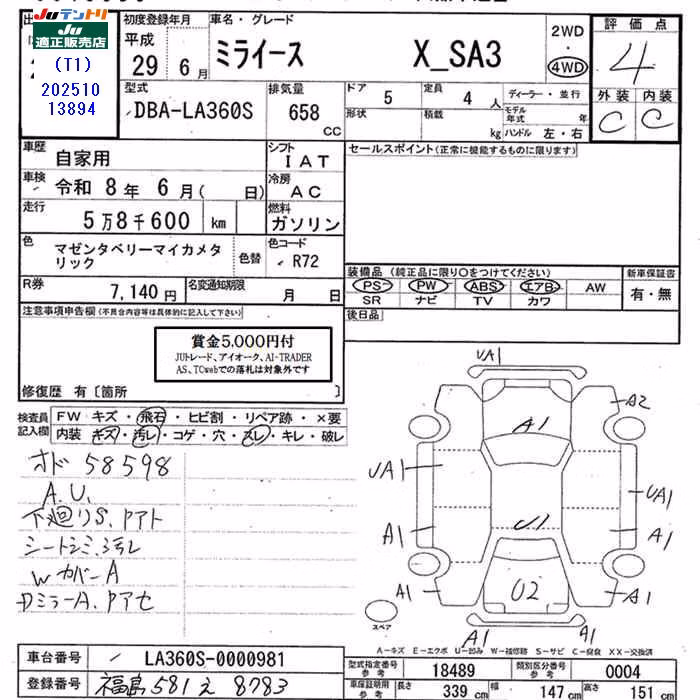 JUテントリ
JU
適正販売店
(T1)
202510
13894
初度登録年月
平成
29 6月
車名・グレード
ミライース X_SA3
2WD
・
4WD
評価点
4
外装 内装
C C
型式
DBA-LA360S
排気量
658
CC
ドア 5
定員 4 人
ディーラー・並行
形状
積載 kg
モデル年式 年
ハンドル 左・右
車歴
自家用
シフト
IAT
セールスポイント(正常に機能するものに限ります)
車検
令和 8年 6月( 日)
冷房
AC
走行
5万8千600 km
燃料
ガソリン
色
マゼンタベリーマイカメタ
リック
色替
色コード
R72
装備品(純正品に限り○をつけてください)
新車保証書
PS PW ABS エアB AW
SR ナビ TV カワ
有・無
R券
7,140円
名変通知期限
月 日
後日品
注意事項申告欄(不具合内容等は具体的に記入して下さい)
賞金5,000円付
JUトレード、アイオーク、AI-TRADER
AS、TCwebでの落札は対象外です
修復歴 有〔箇所 〕
検査員
記入欄
FW キズ・飛石・ヒビ割・リペア跡・×要
内装 キズ・汚レ・コゲ・穴・スレ・キレ・破レ
オド 58598
A.U.
下廻りS.Pアト
シートシミ.汚レ
WカバーA
DミラーA.Pアセ
UA1
A2
A1
UA1
UA1
A1
U1
A1
A1
02
A1
A1
A1
スペア
A－キズ E－エクボ U－凹み W－補修跡 S－サビ C－腐食 XX－交換済
車台番号
LA360S-0000981
登録番号
福島 581 え 8783
型式指定番号
参考
18489
類別区分番号
参考
0004
車庫証明用
参考
長さ 339 cm
幅 147 cm
高さ 151 cm